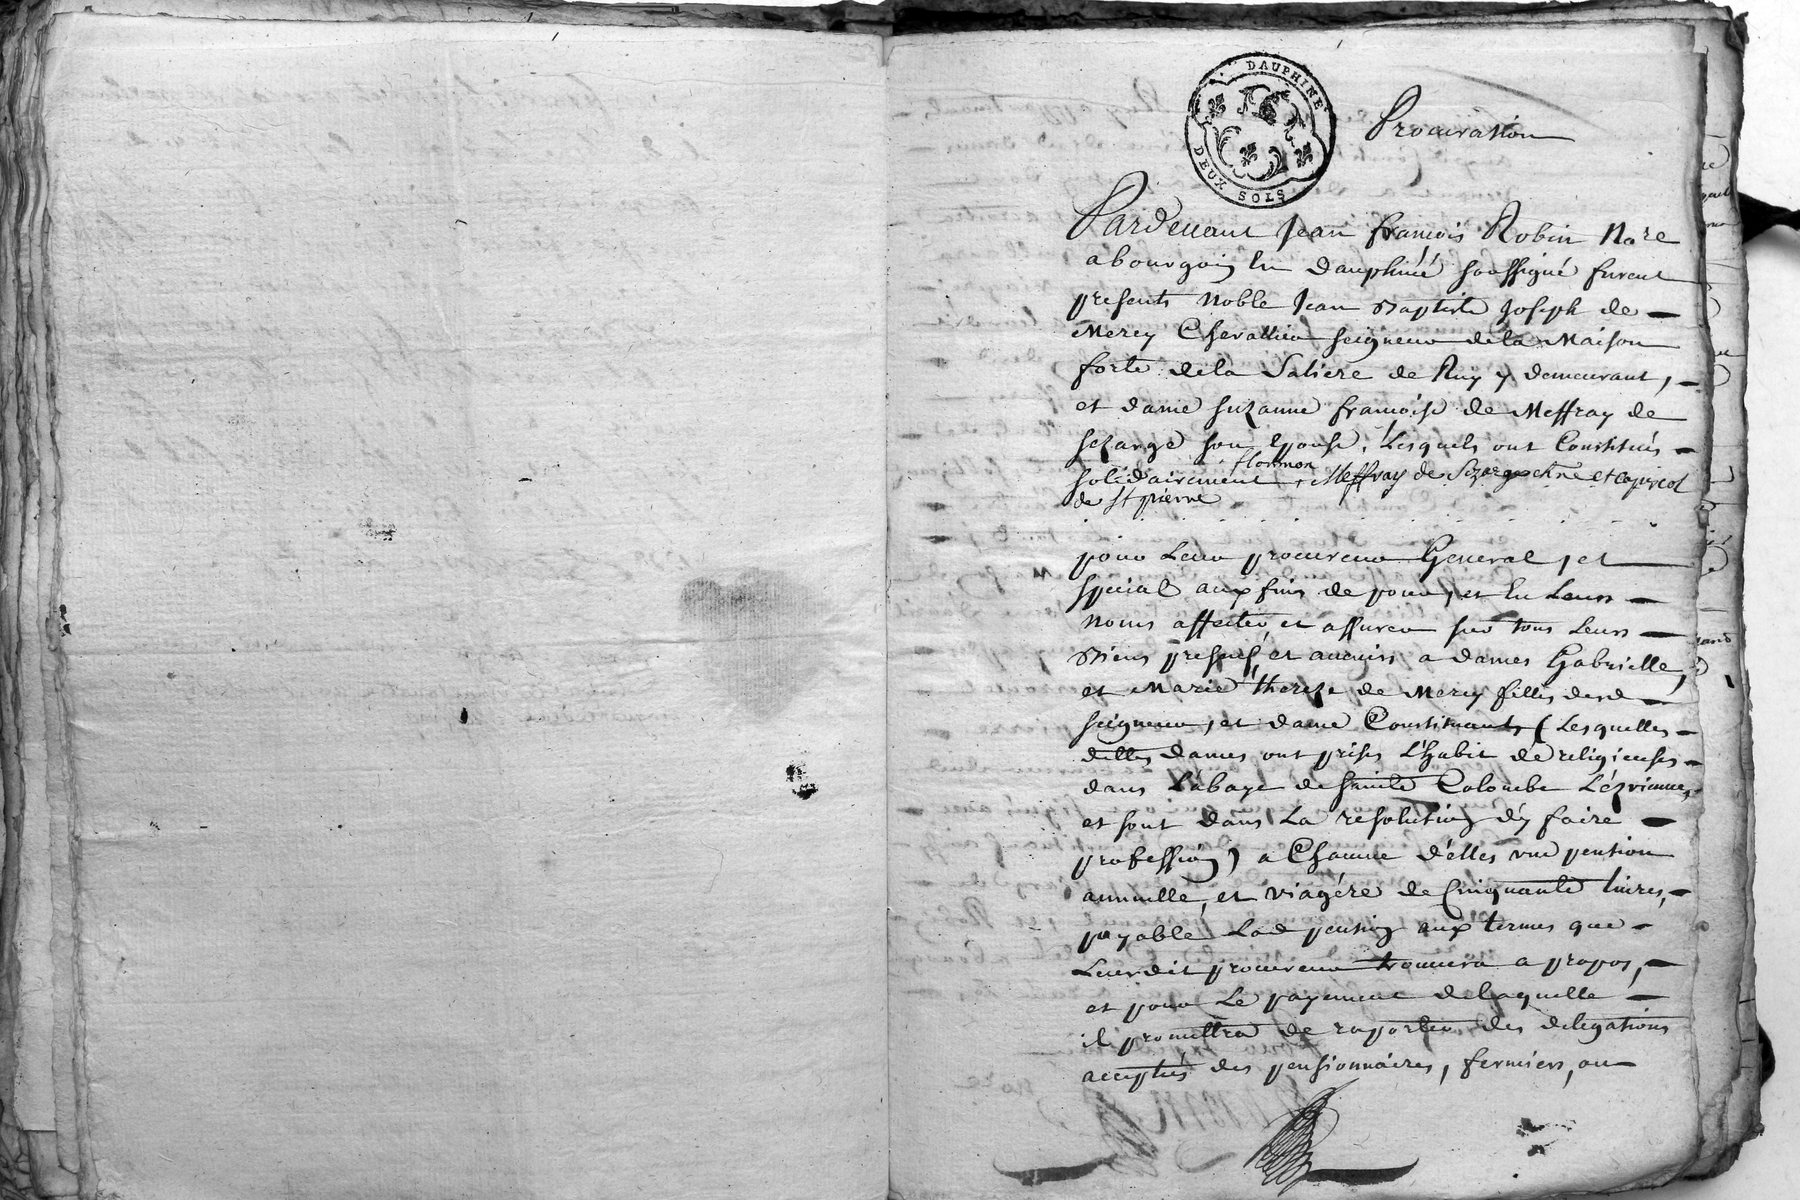 DAUPHINE
DEUX SOLS
Procuration
Pardevant Jean françois Robin No.re
a bourgoin En dauphiné soussigné furent
presents Noble Jean Baptiste Joseph de
Merey Chevallier seigneur de la Maison
forte de la Saliere de Ruy y demeurant,
et dame suzanne françoise de Meffray de
sezarge son Epouse, Lesquels ont Constitués
solidairement flormon Meffray de Sezarge et
de St pierre
pour Leur procureur General, et
special aux fins de pour, et En Leurs
Noms affecter, et assurer sur tous Leurs
Biens presents, et avenirs a dames Gabrielle,
et Marie therese de Merey filles desd
seigneur, et dame Constituants (Lesquelles
dittes dames ont prises L'habit de religieuses
dans L'abaye de sainte Colombe Lézvienne,
et sont dans La resolution d'y faire
profession) a Chacune d'elles une pention
annuelle, et viagére de Cinquante livres,
payable Lad pention aux termes que
Leurdit procureur trouvera a propos,
et pour Le payement de laquelle
il promettra de raporter des delegations
acceptés des pensionnaires, fermiers, ou